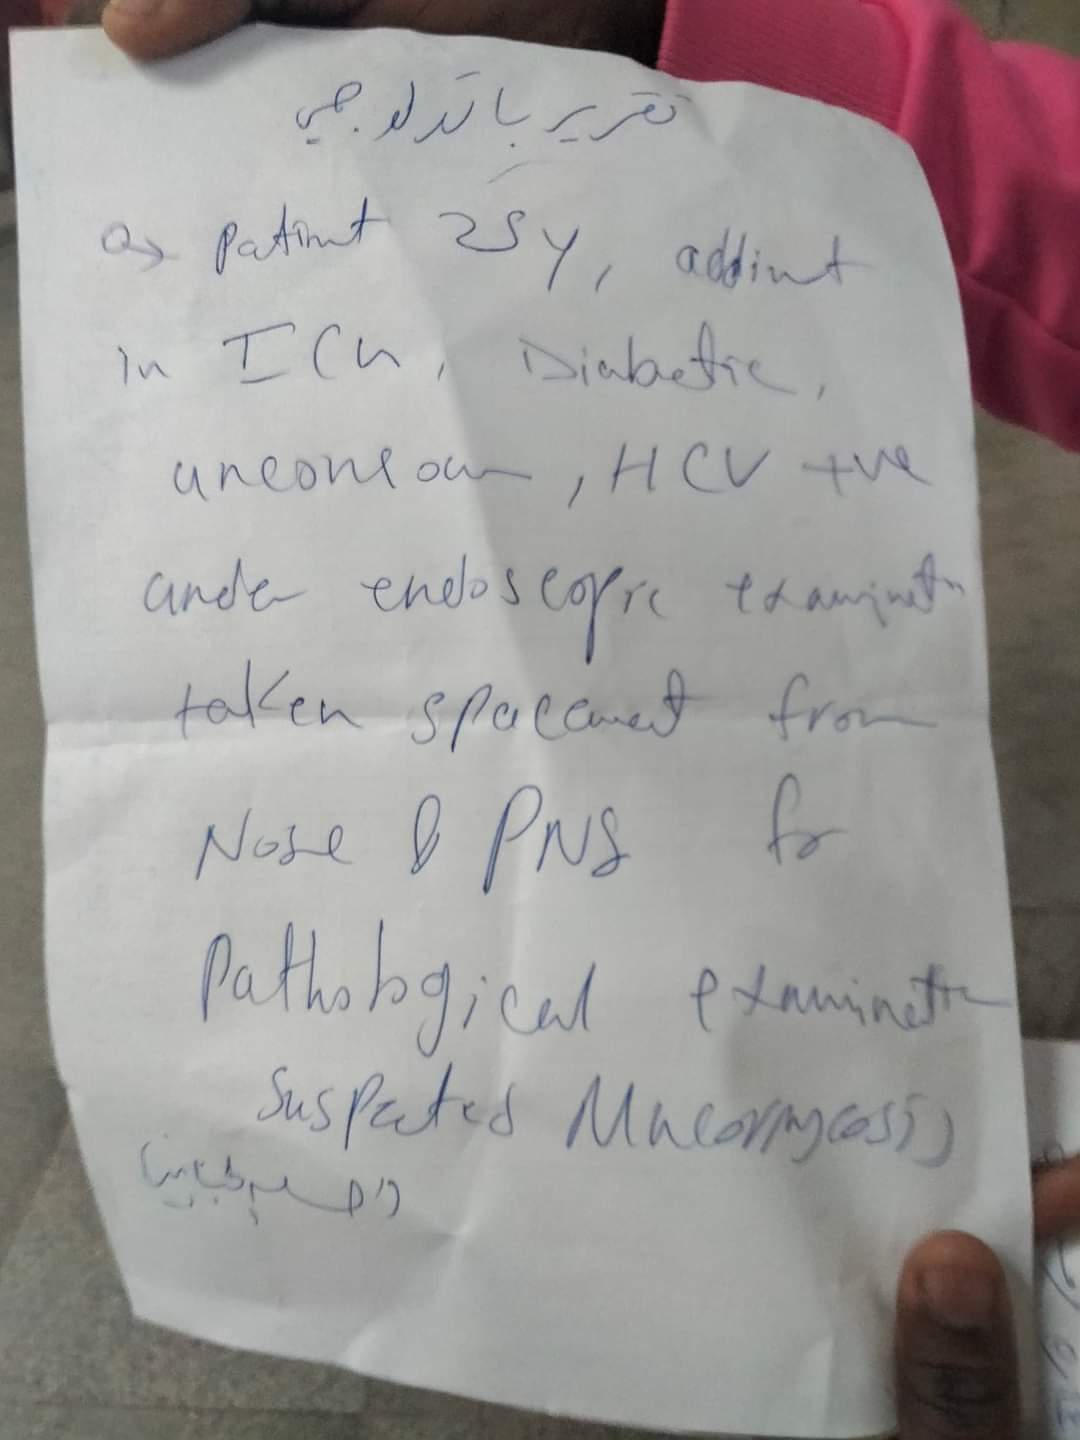 تقرير باثولوجي
patient 25 y, addimt
in ICU, Diabetic,
unconsous, HCV +ve
under endoscopic examination
taken spacement from
Nose & PNS for
Pathological examination
Suspected Mucormycosis